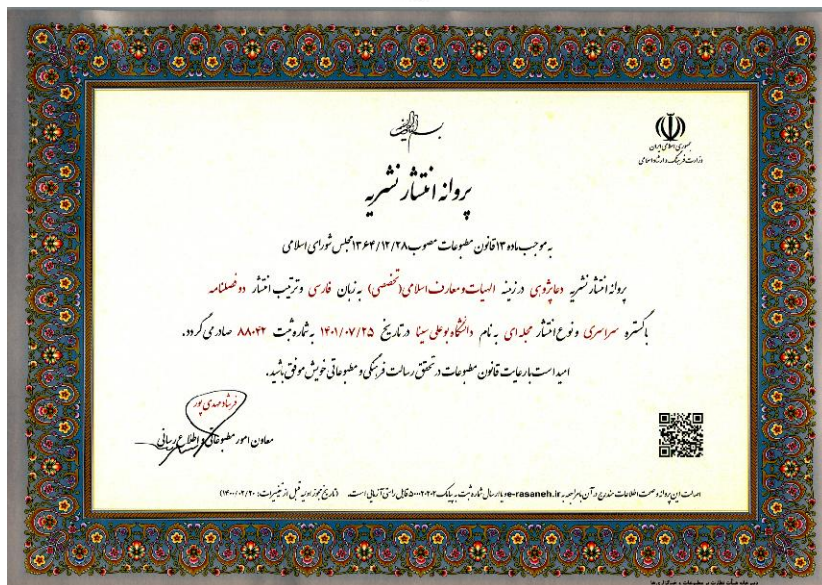 بسم الله الرحمن الرحیم
جمهوری اسلامی ایران
وزارت فرهنگ و ارشاد اسلامی
پروانه انتشار نشریه
به موجب ماده ۱۳ قانون مطبوعات مصوب ۱۳۶۴/۱۲/۲۸ مجلس شورای اسلامی
پروانه انتشار نشریه دعاپژوهی در زمینه الهیات و معارف اسلامی (تخصصی) به زبان فارسی و ترتیب انتشار دو فصلنامه
با گستره سراسری و نوع انتشار مجله ای به نام دانشگاه بوعلی سینا در تاریخ ۱۴۰۱/۰۷/۲۵ به شماره ثبت ۸۸۰۴۲ صادر می گردد.
امید است با رعایت قانون مطبوعات در تحقق رسالت فرهنگی و مطبوعاتی خویش موفق باشید.
فرشاد مهدی پور
معاون امور مطبوعاتی و اطلاع رسانی
اصالت این پروانه و صحت اطلاعات مندرج در آن با مراجعه به e-rasaneh.ir و یا ارسال شماره ثبت به پیامک ۵۰۰۰۲۰۲۰۲ قابل راستی آزمایی است. (تاریخ مجوز اولیه قبل از تغییرات: ۱۴۰۰/۰۲/۲۰)
دبیرخانه هیأت نظارت بر مطبوعات و خبرگزاری ها